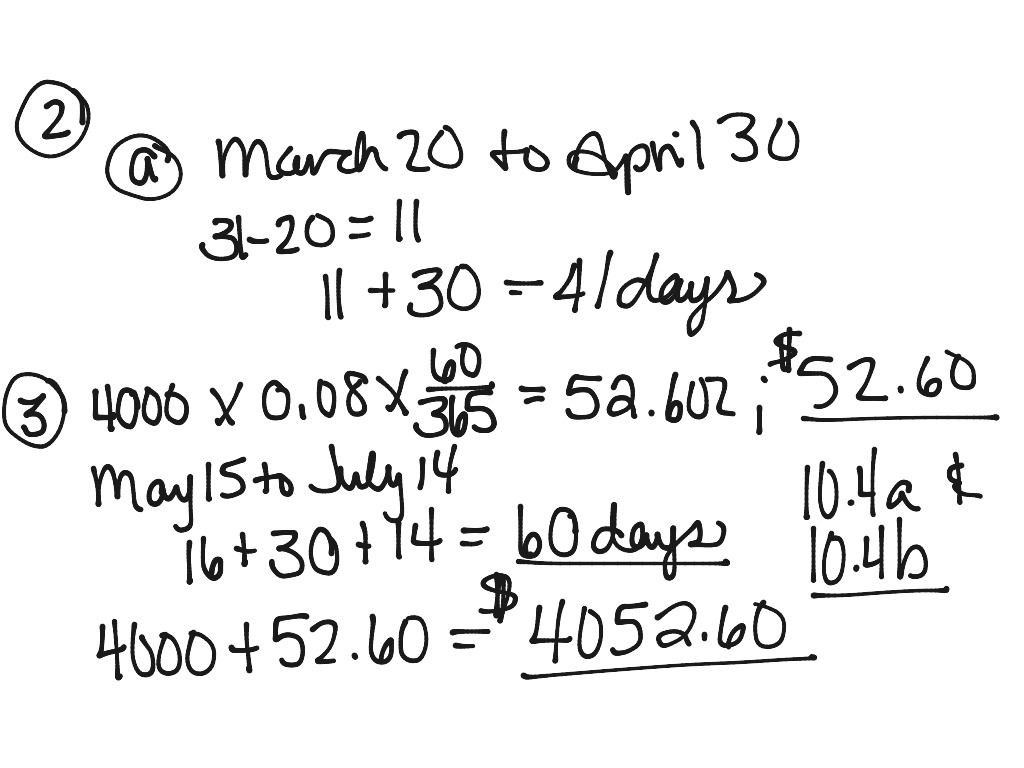 2
a March 20 to April 30
31-20 = 11
11 + 30 = 41 days
3 4000 x 0.08 x 60/365 = 52.602 ; $52.60
May 15 to July 14
16 + 30 + 14 = 60 days
4000 + 52.60 = $4052.60
10.4a &
10.4b